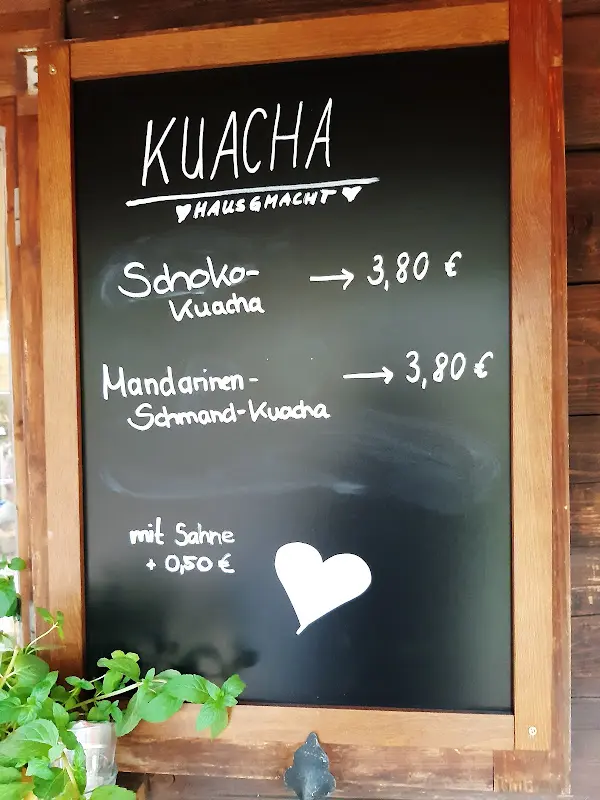 KUACHA
HAUSGMACHT
Schoko-
Kuacha → 3,80 €
Mandarinen-
Schmand-Kuacha → 3,80 €
mit Sahne
+ 0,50 €